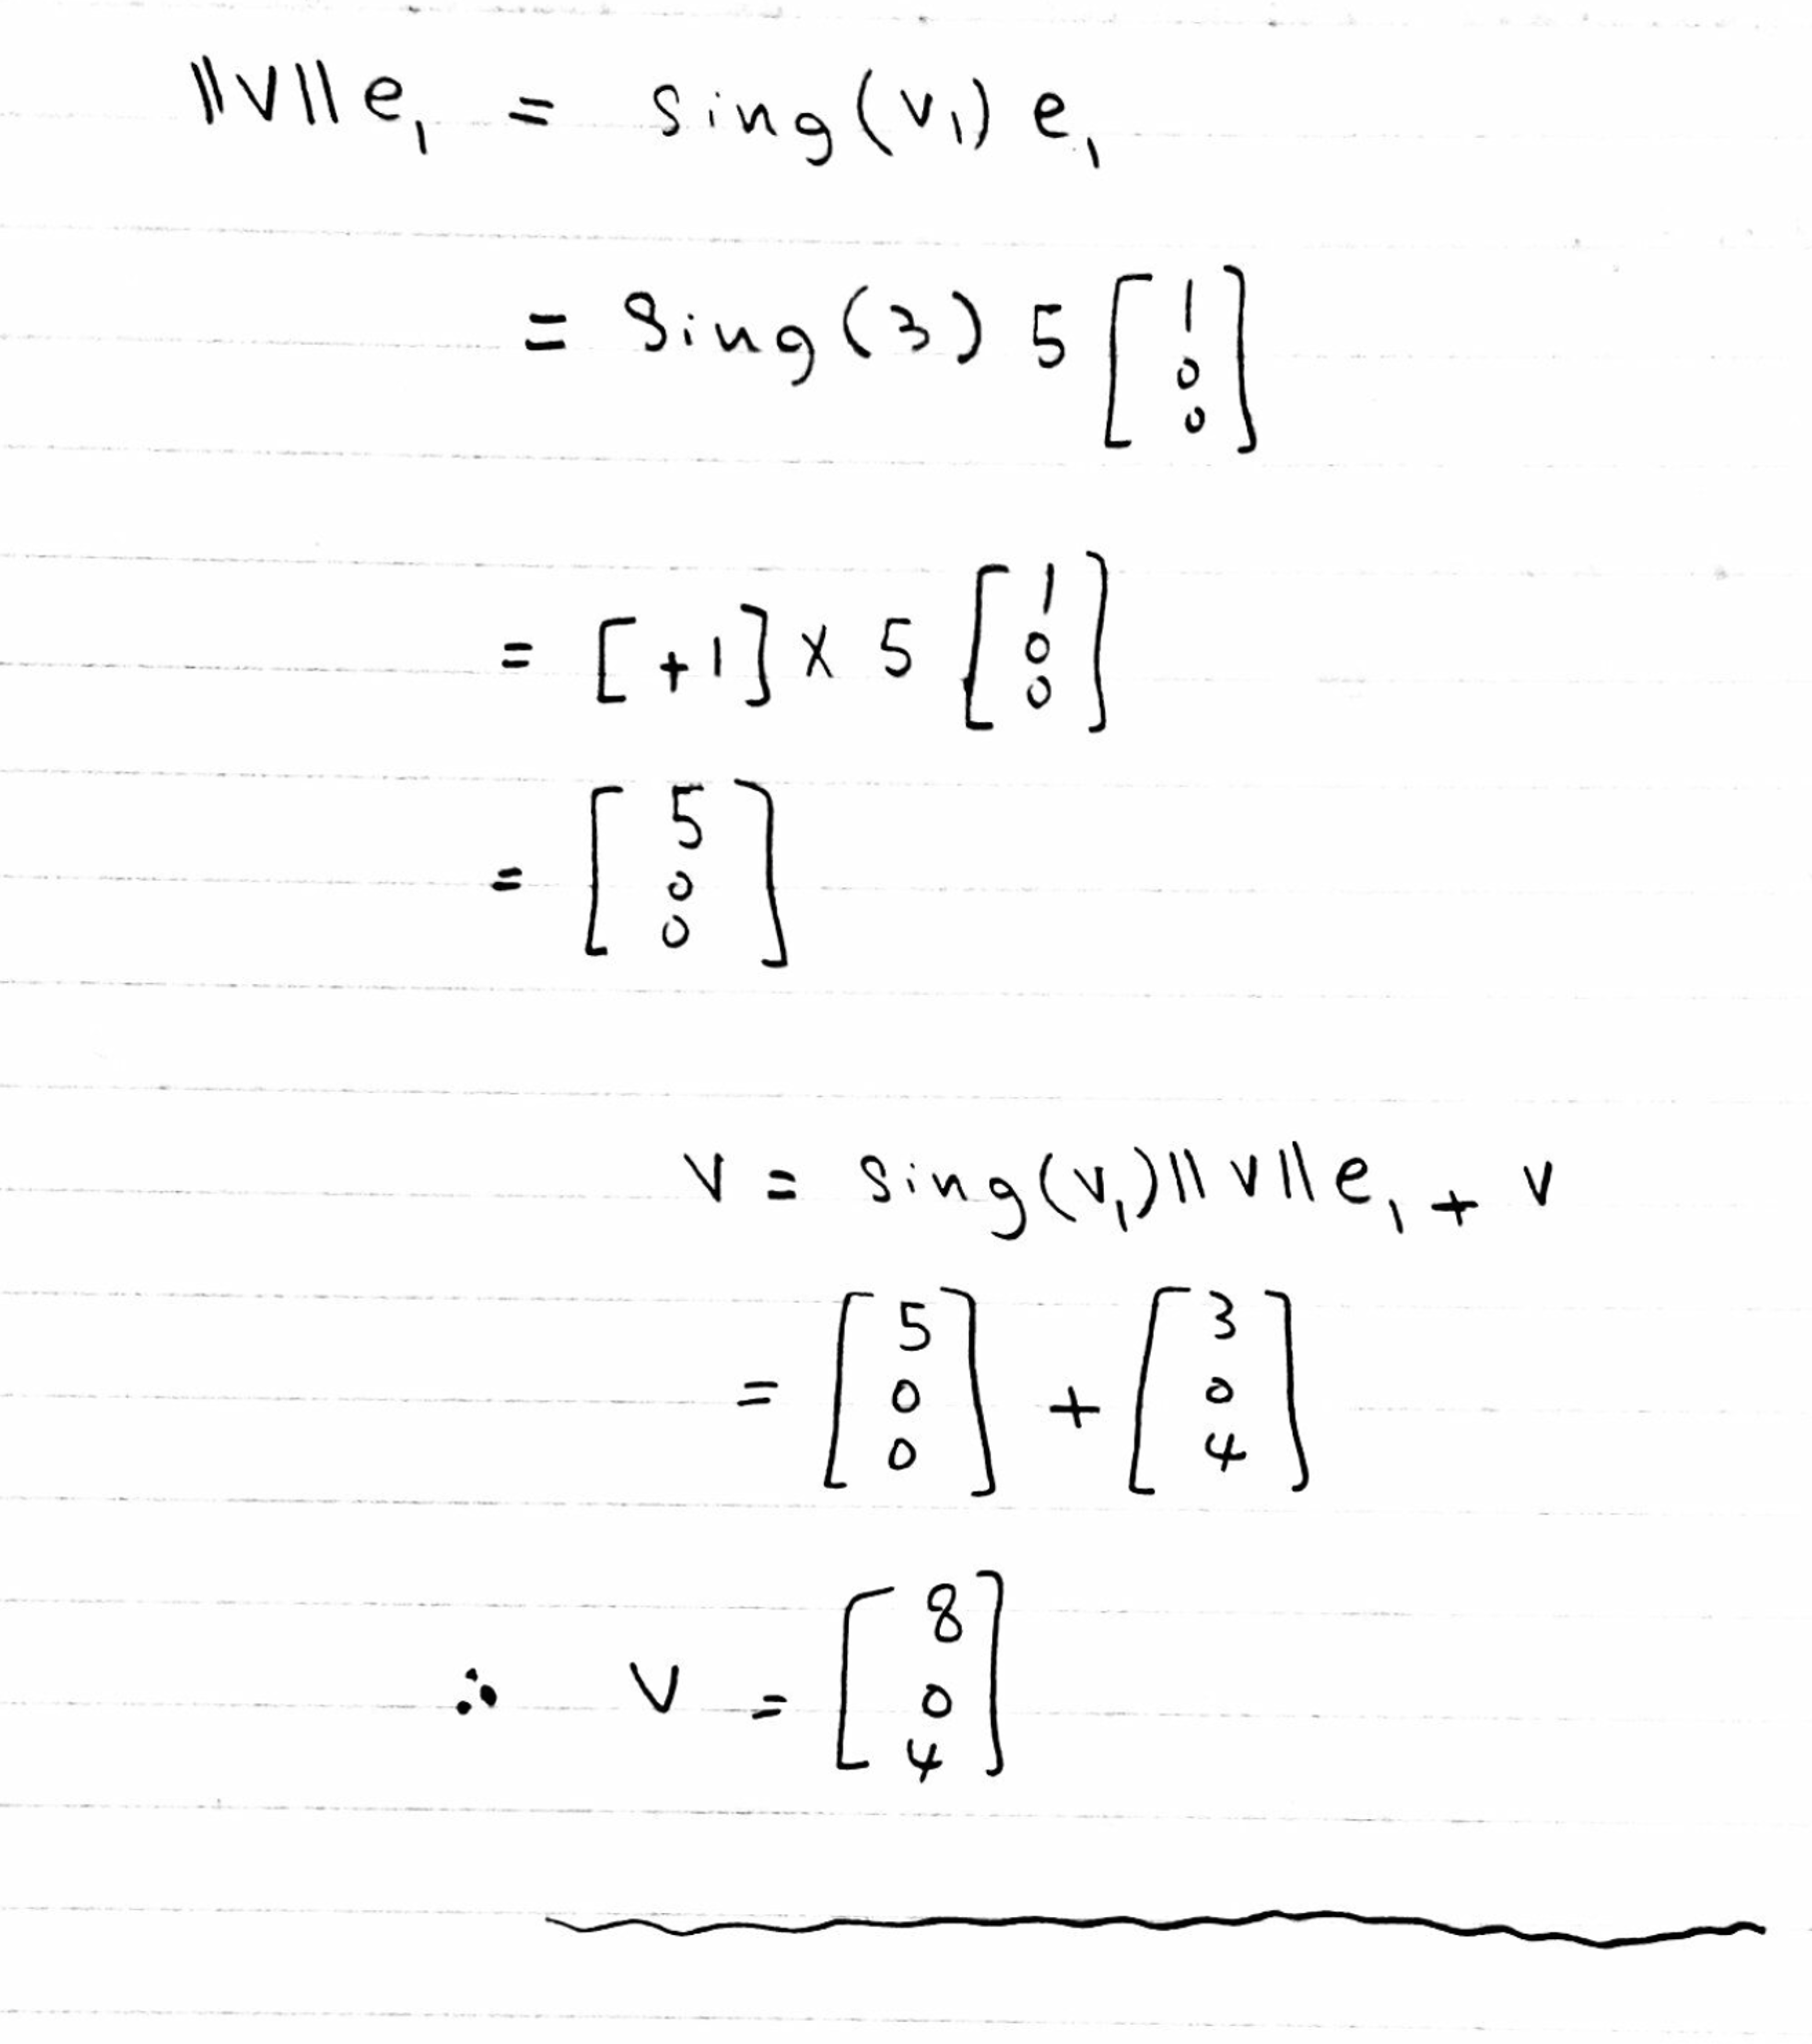 ||V|| e₁ = Sing(v₁) e₁
= Sing(3) 5 [1 0 0]
= [+1] x 5 [1 0 0]
= [5 0 0]
V = Sing(v₁)||V|| e₁ + V
= [5 0 0] + [3 0 4]
∴ V = [8 0 4]